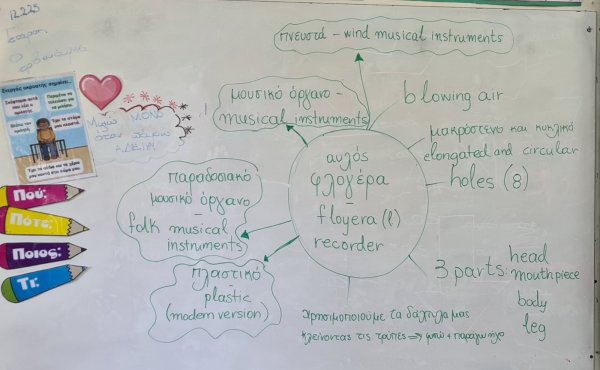 12.2.25
πνευστά - wind musical instruments
μουσικό όργανο -
musical instruments
blowing air
μακρόστενο και κυκλικό
elongated and circular
holes (8)
αυλός
φλογέρα
-
floyera (l)
recorder
παραδοσιακό
μουσικό όργανο
-
folk musical
instruments
πλαστικό
-
plastic
(modern version)
3 parts: head
mouthpiece
body
leg
Χρησιμοποιούμε τα δάχτυλα μας
κλείνοντας τις τρύπες ⇒
Μιλάω ΜΟΝΟ
ΑΔΕΙΑ
Ενεργός ακροατής σημαίνει...
Πού:
Πότε:
Ποιος:
Τι: